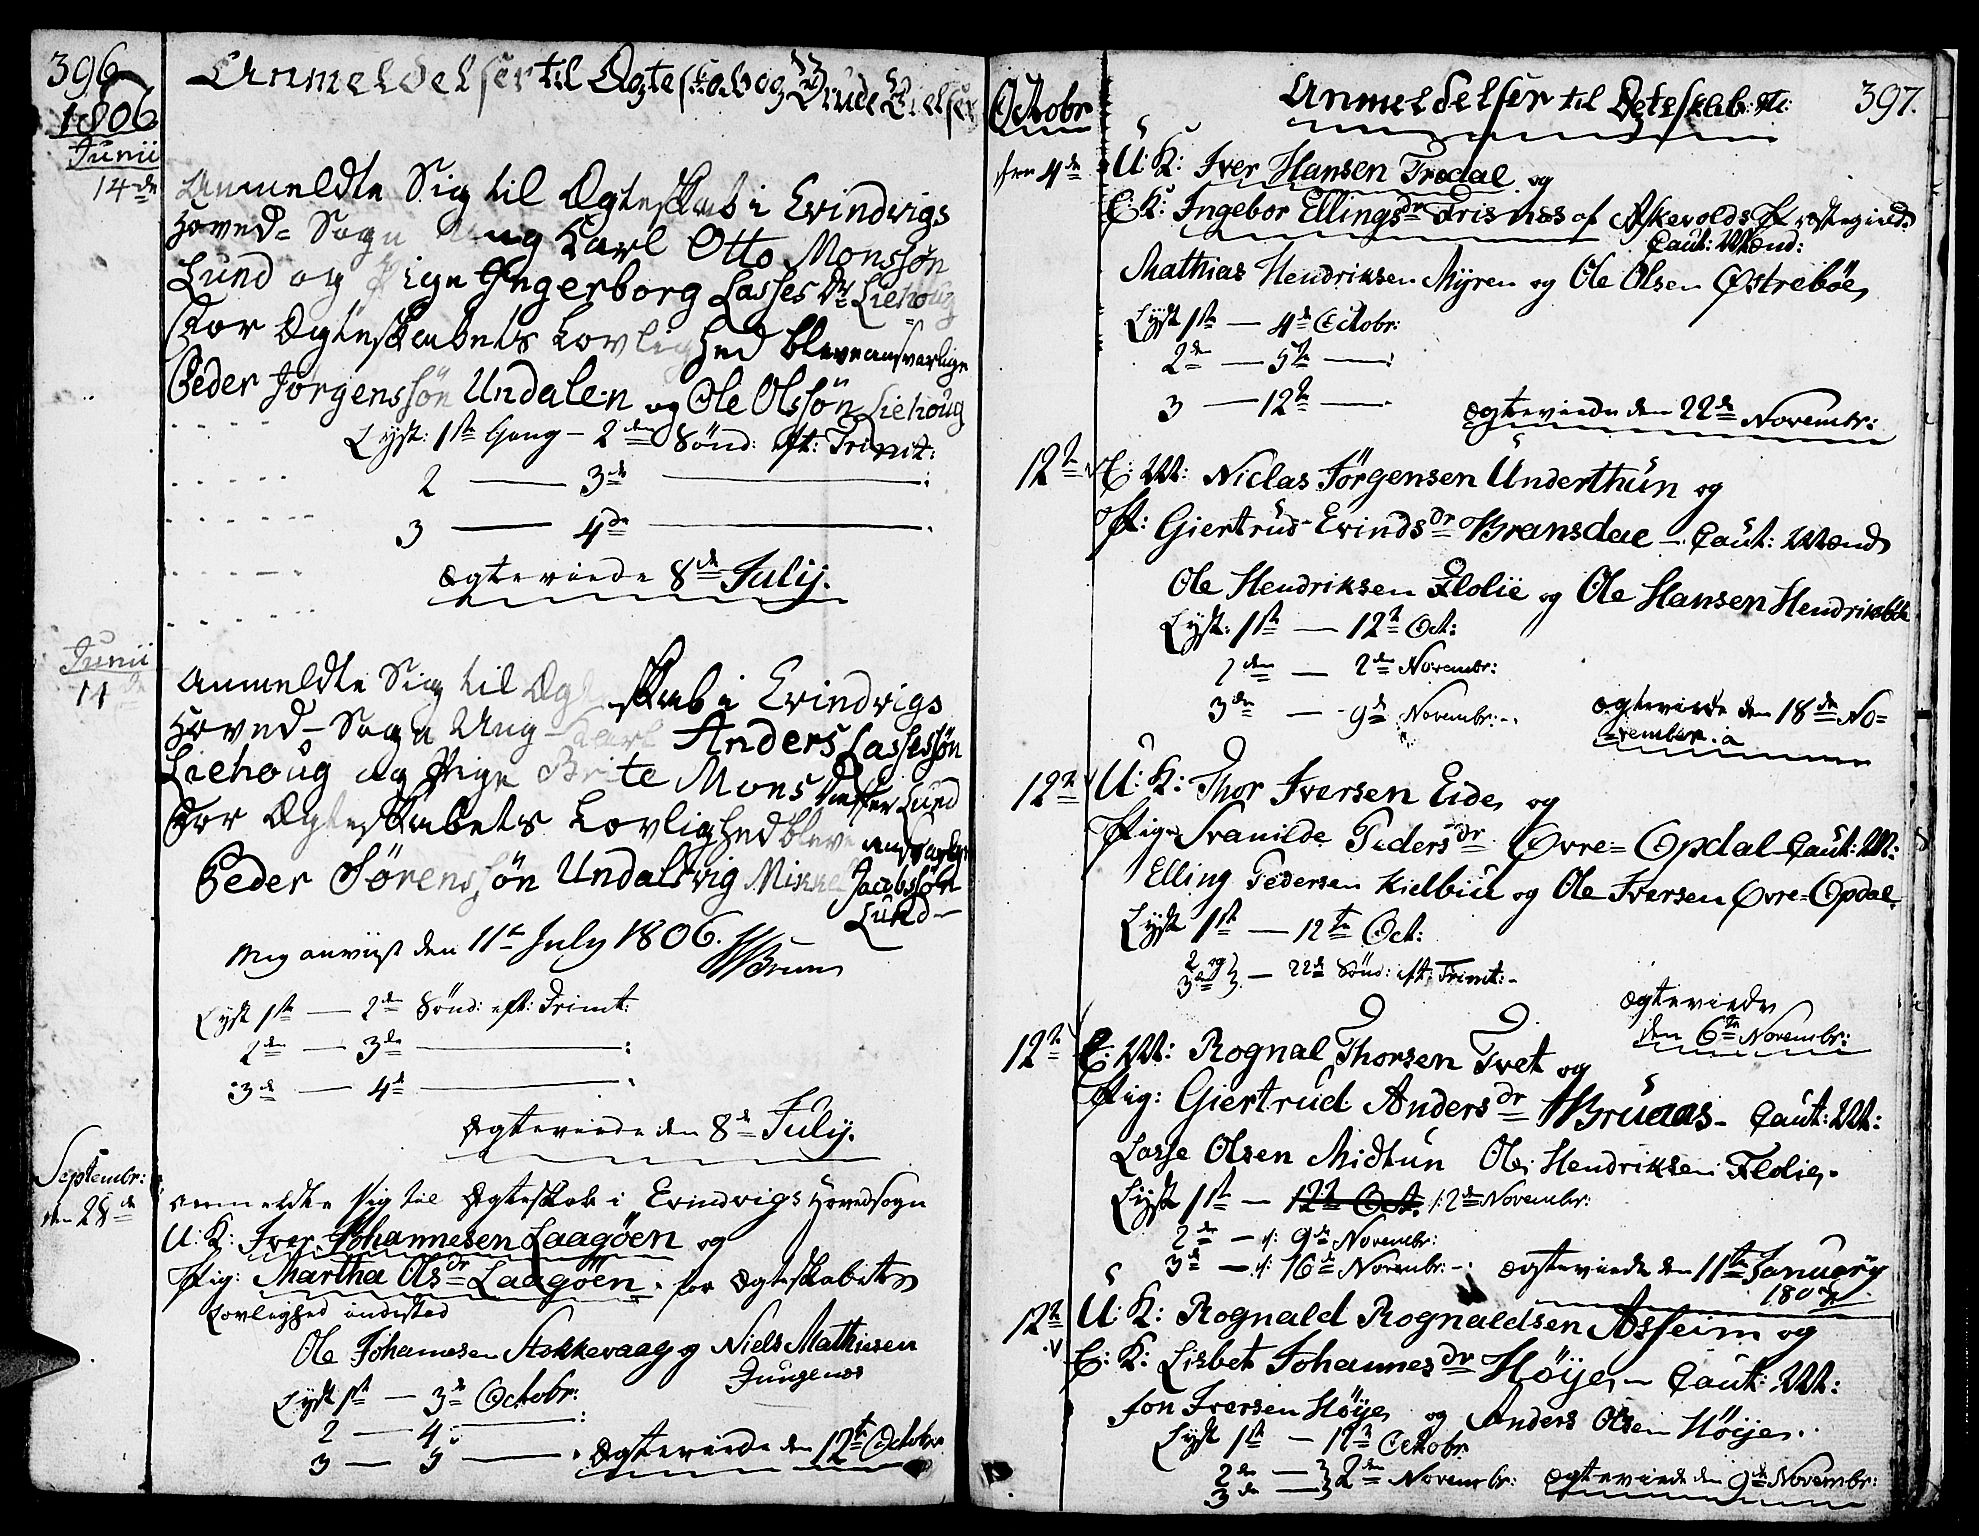 396
1806
Anmeldelser til Ægteskab og Brude Vielser
Junii
14de
Anmeldte Sig til Ægteskab i Evindvigs
Hoved-Sogn Ung Karl Otto Monssøn
Lund og Pige Ingerborg Lasses Dr Liehoug
For Ægteskabets Lovlighed bleve ansvarlige
Peder Jørgenssøn Undalen og Ole Olssøn Liehoug
Lyst: 1ste Gang - 2den Sønd: eft: Trinit:
2 — 3de —
3 — 4de —
Ægteviede 8de Julij.
Junii
14de
Anmeldte Sig til Ægteskab i Evindvigs
Hoved-Sogn Ung-Karl Anders Lassessøn
Liehoug og Pige Brite Mons Datter Lund
For Ægteskabets Lovlighed bleve ansvarlige
Peder Sørenssøn Undal og Mikkel Jacobssøn
Lund -
Mig anviist den 11te July 1806.
Lyst 1ste — 2de Sønd: eft: Trinit:
2de — 3de —
3de — 4de —
Ægteviede den 8de Julij.
Septembr:
den 28de
Anmeldte sig til Ægteskab i Evindvigs Hovedsogn
U: K: Iver Johannesen Laagøen og
Pig: Martha Ols Dr Laagøen. for Ægteskabets
Lovlighed indestod
Ole Johannesen Stokkevaag og Niels Mathiesen
Lyst 1ste — 3de Octobr:
2 — 4 —
3 — 5 — Ægteviede den 12te Octobr
397.
Octobr
Anmeldelser til Ægteskab: etc:
den 4de
U: K: Iver Hansen Trædal og
E: K: Ingebor Ellings Dr Trisnæs af Askevolds Præstegield
Caut: Mænd:
Mathias Hendriksen Myren og Ole Olsen Østrebøe,
Lyst 1ste — 4de Octobr:
2de — 5te —
3 — 12te —
Ægteviede den 22de Novembr:
12te E: M: Niclas Jørgensen Underthun og
P: Giertrud Evinds Dr Bransdal - Caut: Mænd
Ole Hendriksen Flolie og Ole Hansen Hendriksbøe
Lyst: 1ste — 12te Oct:
2den — 2den Novembr:
3de — 9de Novembr:
Ægteviede den 18de No=
=vember.
12te U: K: Thor Iversen Eide, og
Pige Svanilde Peders Dr Øvre=Opdal Caut: M:
Elling Pedersen Kielbue og Ole Iversen Øvre=Opdal.
Lyst 1ste — 12te Oct:
2 og
3de — 22de Sønd: eft: Trinit:
Ægteviede
den 6te Novembr:
12te E: M: Rognal Thorsen Tvet og
Pig: Giertrud Anders Dr Bruaas - Caut: M:
Lasse Olsen Midtun Ole Hendriksen Flolie,
Lyst 1ste — 12te Oct. 2de Novembr:
2de — 9de Novembr:
3de — 16de Novembr: Ægteviede den 11te January
1807.
12te U: K: Rognald Rognaldsen Asheim og
E: K: Lisbet Johannes Dr Høye, - Caut: M:
Jon Iversen Høye, og Anders Olsen Høye.
Lyst 1ste — 12te Octobr
2de —
3de — 2den Novembr: Ægteviede den 9de Novembr: